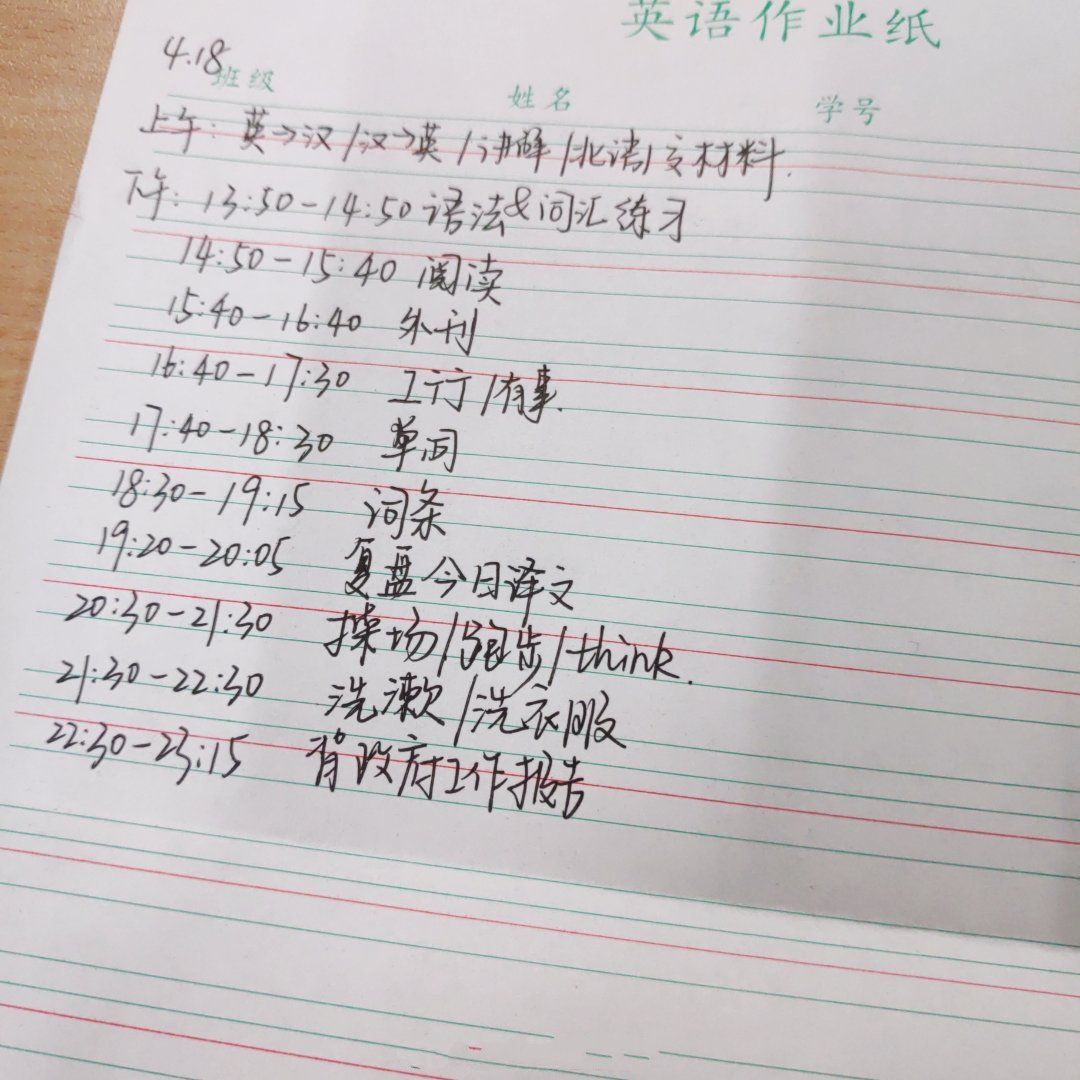 英语作业纸
4.18
班级 姓名 学号
上午: 英→汉/汉→英/讲解/北语/交材料.
下午: 13:50-14:50 语法&词汇练习
14:50-15:40 阅读
15:40-16:40 外刊
16:40-17:30 工行/有事.
17:40-18:30 单词
18:30-19:15 词条
19:20-20:05 复盘今日译文
20:30-21:30 操场/跑步/think.
21:30-22:30 洗漱/洗衣服
22:30-23:15 背政府工作报告